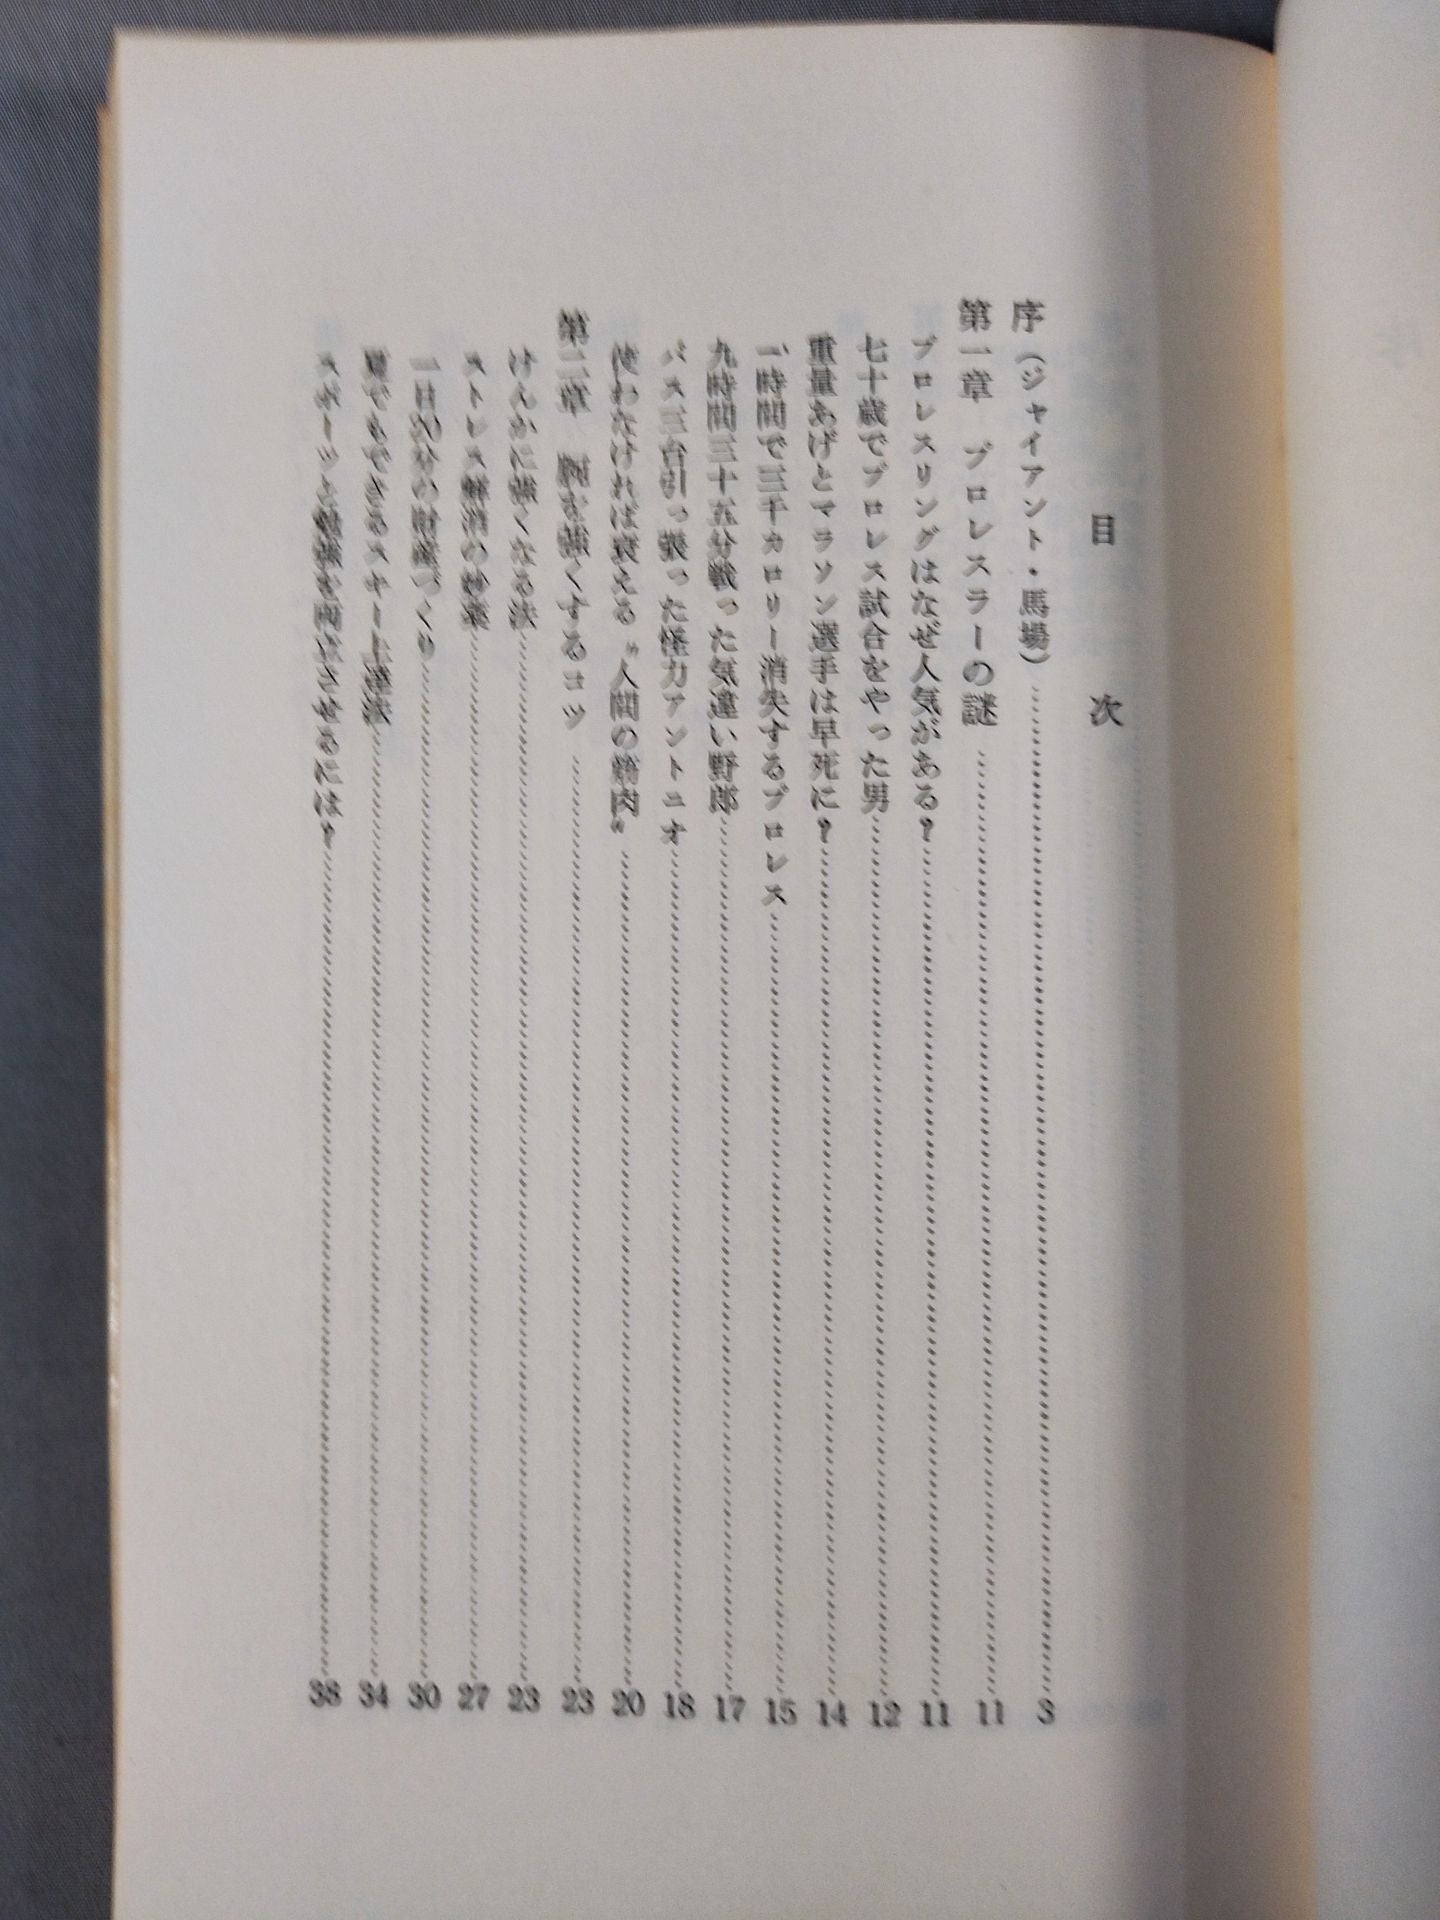 目次
序(ジャイアント・馬場)……3
第一章 プロレスラーの謎……11
プロレスリングはなぜ人気がある?……11
七十歳でプロレス試合をやった男……12
重量あげとマラソン選手は早死に?……14
一時間で三千カロリー消失するプロレス……15
九時間三十五分戦った気違い野郎……17
バス三台引っ張った怪力アントニオ……18
使わなければ衰える〝人間の筋肉〟……20
第二章 腕を強くするコツ……23
けんかに強くなる法……23
ストレス解消の妙薬……27
一日20分の財産づくり……30
夏でもできるスキー上達法……34
スポーツと勉強を両立させるには?……38